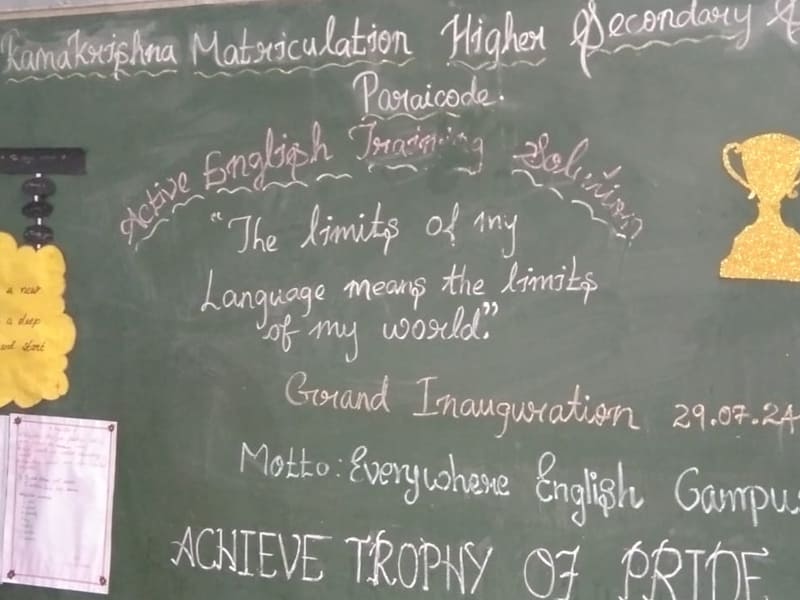 Ramakrishna Matriculation Higher Secondary S
Paraicode.
Active English Training Solution
"The limits of my
Language means the limits
of my world."
Grand Inauguration 29.07.24
Motto: Everywhere English Campus
ACHIEVE TROPHY OF PRIDE
a new
a deep
and start